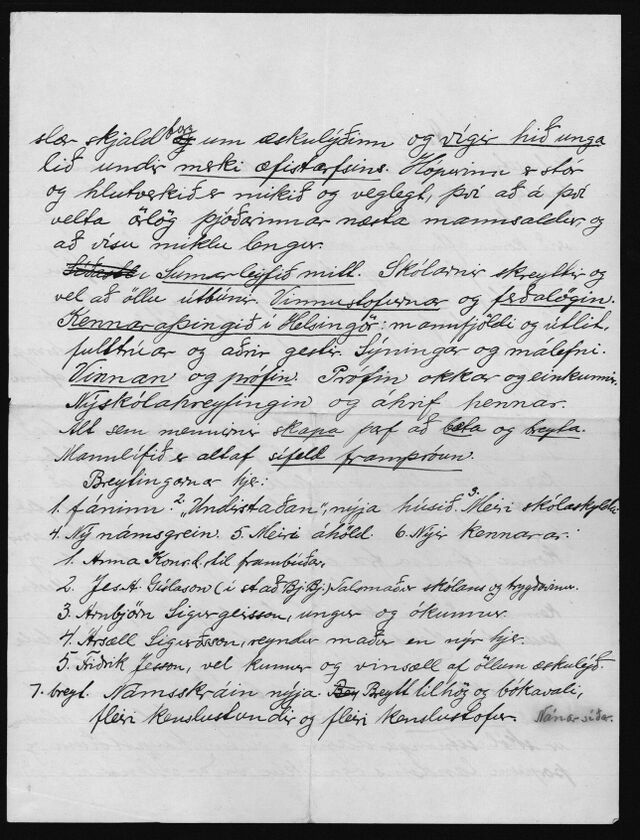 slær skjaldborg um æskulýðinn og vígir hið unga
lið undir merki æfistarfsins. Hópurinn er stór
og hlutverkið er mikið og veglegt, því að á því
velta örlög þjóðarinnar næsta mannsaldur, og
að vísu miklu lengur.
Sumarleyfið mitt. Skólarnir skreyttir og
vel að öllu útbúnir. Vinnustofurnar og ferðalögin.
Kennaraþingið í Helsingör: mannfjöldi og útlit,
fulltrúar og aðrir gestir. Sýningar og málefni.
Vinnan og prófin. Prófin okkar og einkunnir.
Nýskólahreyfingin og áhrif hennar.
Alt sem mennirnir skapa þarf að bæta og breyta.
Mannlífið er altaf sífell framþróun.
Breytingarnar hjer:
1. fáninn. 2. „Undirstaðan", nýja húsið. 3. Meiri skólaskylda
4. Ný námsgrein. 5. Meiri áhöld. 6. Nýir kennarar:
1. Anna Konrd. til frambúðar.
2. Jes A. Gíslason (í stað Bj. Bj.) Talsmaður skólans og
3. Arnbjörn Sigurgeirsson, ungur og ókunnur.
4. Ársæll Sigurðsson, reyndur maður en nýr hjer.
5. Friðrik Jesson, vel kunnur og vinsæll af öllum æskulýð.
7. breyt. Námsskráin nýja. Breytt tilhög og bókavali,
fleiri kenslustundir og fleiri kenslustofur. Nánar síðar.